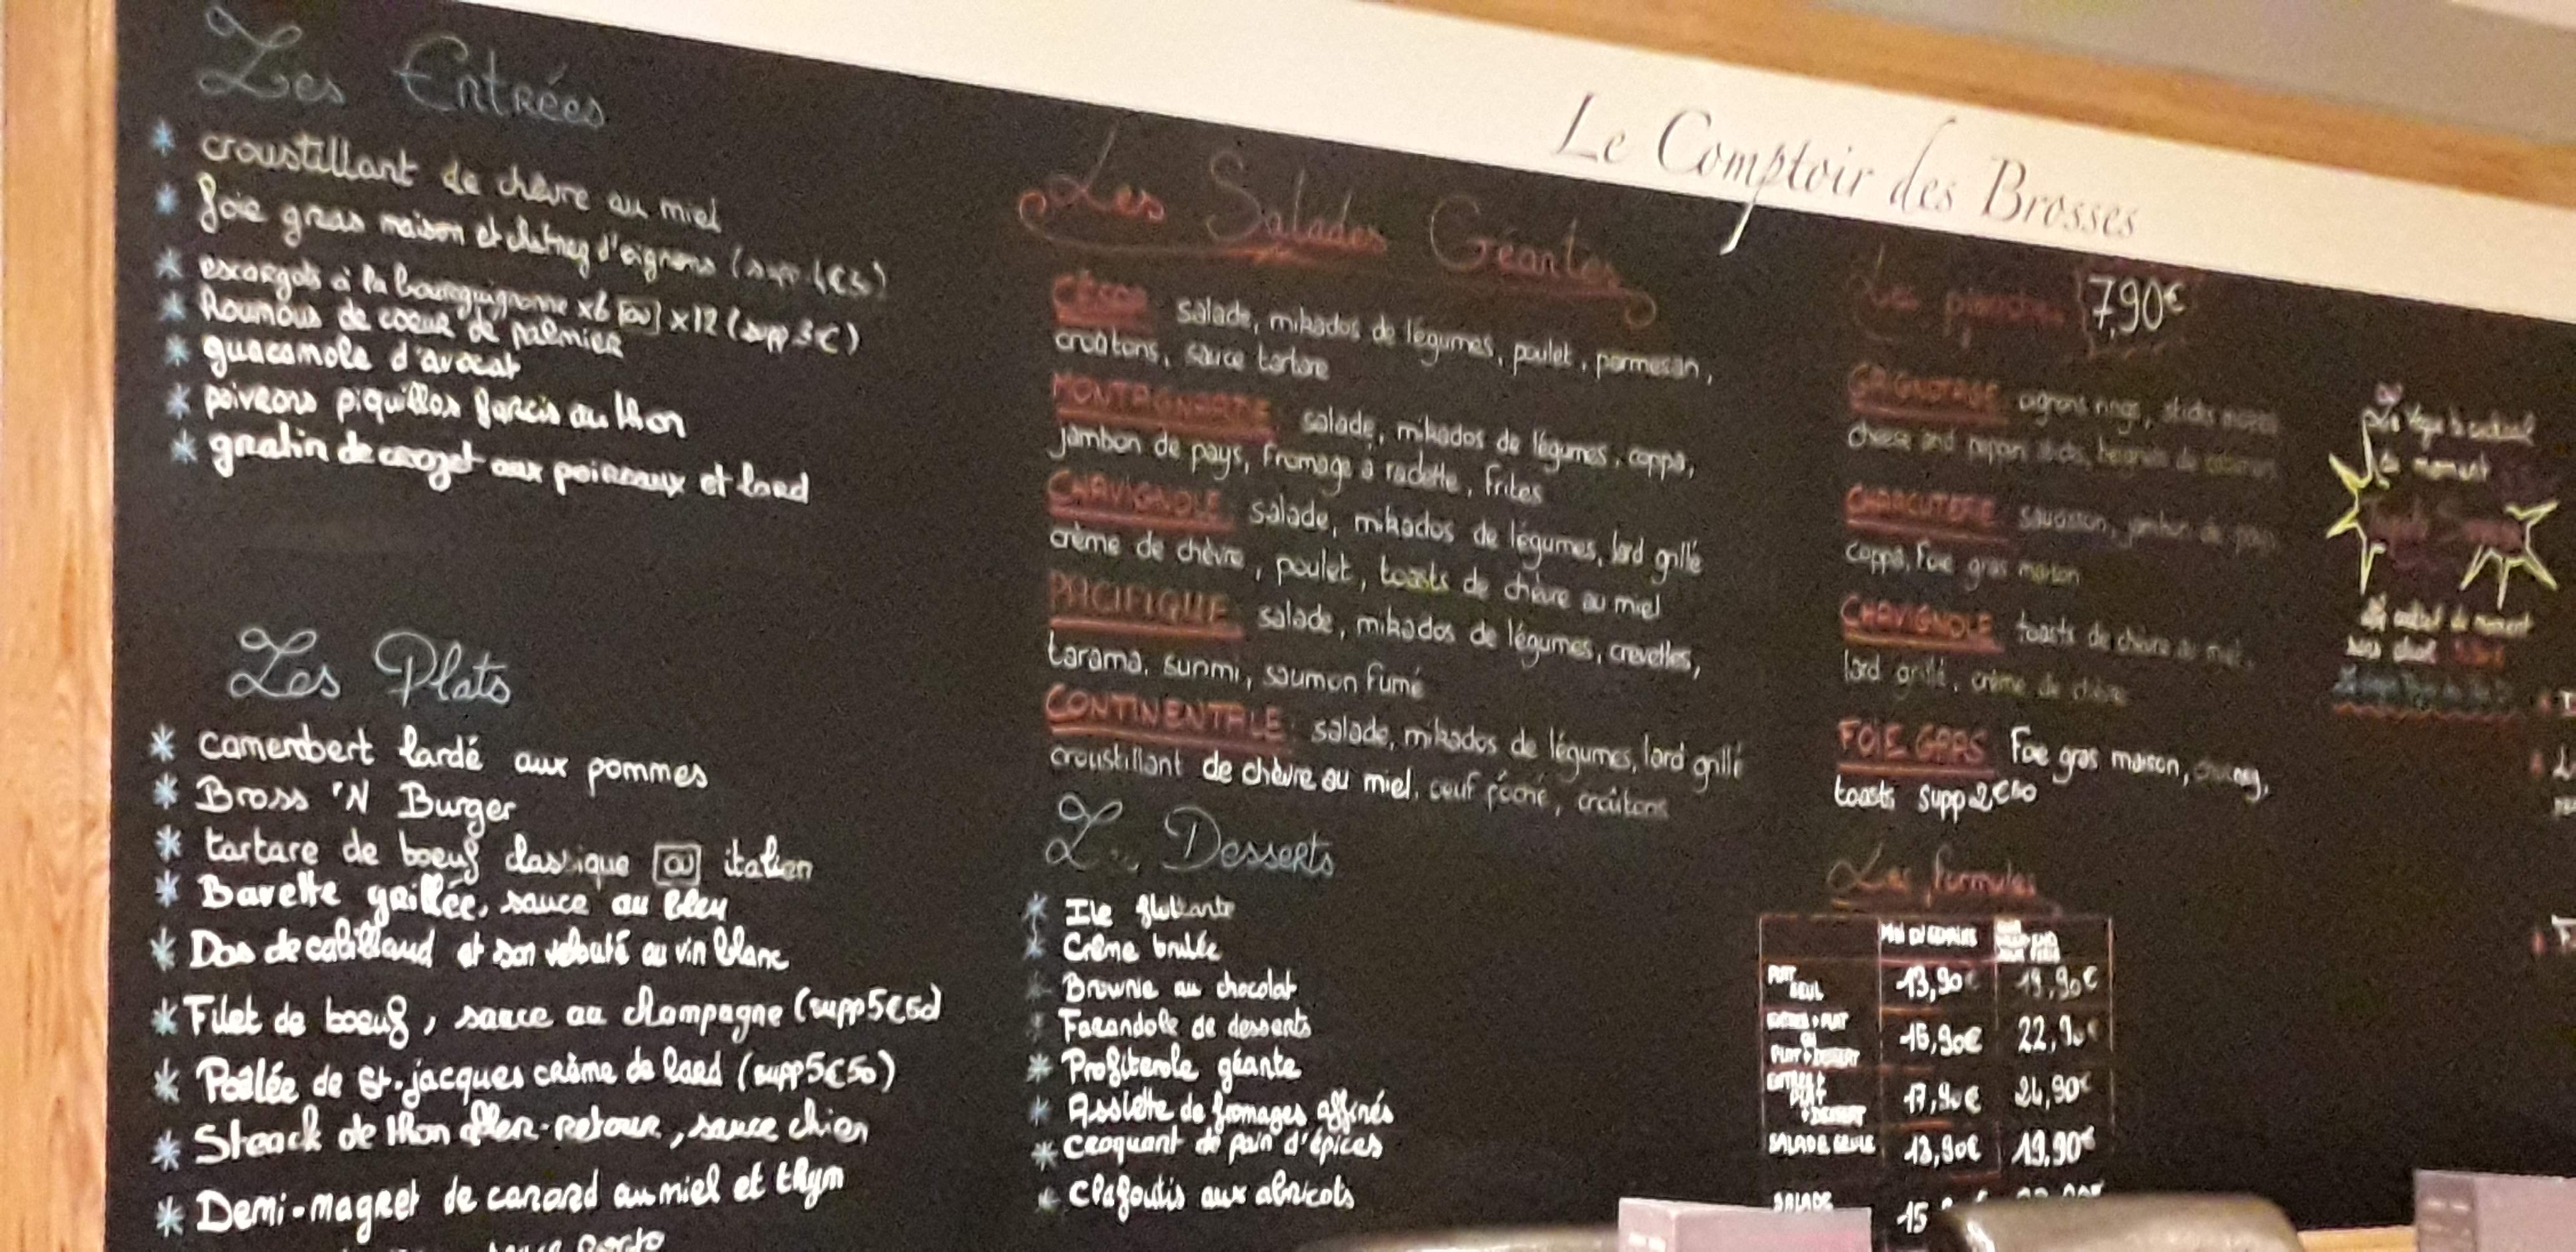 Le Comptoir des Brosses
Les Entrées
* croustillant de chèvre au miel
* foie gras maison et chutney d'oignons (supp
* escargots à la bourguignonne x6 ou x12 (supp 3€)
* Houmous de coeur de palmier
* guacamole d'avocat
* poivrons piquillos farcis au thon
* gratin de crozet aux poireaux et lard
Les Plats
* camembert lardé aux pommes
* Bross 'N Burger
* tartare de boeuf classique ou italien
* Bavette grillée, sauce au bleu
* Dos de cabillaud et son velouté au vin blanc
* Filet de boeuf, sauce au champagne (supp 5€50)
* Poêlée de St-jacques crème de lard (supp 5€50)
* Steack de thon aller-retour, sauce chien
* Demi-magret de canard au miel et thym
sauce porto
Les Salades Géantes
CÉSAR: salade, mikados de légumes, poulet, parmesan,
croûtons, sauce tartare
MONTAGNARDE: salade, mikados de légumes, coppa,
jambon de pays, fromage à raclette, frites
CHAVIGNOLE: salade, mikados de légumes, lard grillé
crème de chèvre, poulet, toasts de chèvre au miel
PACIFIQUE: salade, mikados de légumes, crevettes,
tarama, surimi, saumon fumé
CONTINENTALE: salade, mikados de légumes, lard grillé
croustillant de chèvre au miel, oeuf poché, croûtons
Les Desserts
* Ile flottante
* Crème brulée
* Brownie au chocolat
* Farandole de desserts
* Profiterole géante
* Assiette de fromages affinés
* Croquant de pain d'épices
* Clafoutis aux abricots
Les planches 7,90€
GRIGNOTAGE: oignons rings, sticks
cheese and peppers sticks, beignets de
CHARCUTERIE: saucisson, jambon de pays
coppa, foie gras maison
CHAVIGNOLE: toasts de chèvre au miel,
lard grillé, crème de chèvre
FOIE GRAS: Foie gras maison, chutney,
toasts supp 2€50
Les formules
PLAT SEUL 13,90€ 19,90€
ENTRÉE + PLAT OU PLAT + DESSERT 16,90€ 22,90€
ENTRÉE + PLAT + DESSERT 17,90€ 24,90€
SALADE SEULE 13,90€ 19,90€
SALADE 15
du moment